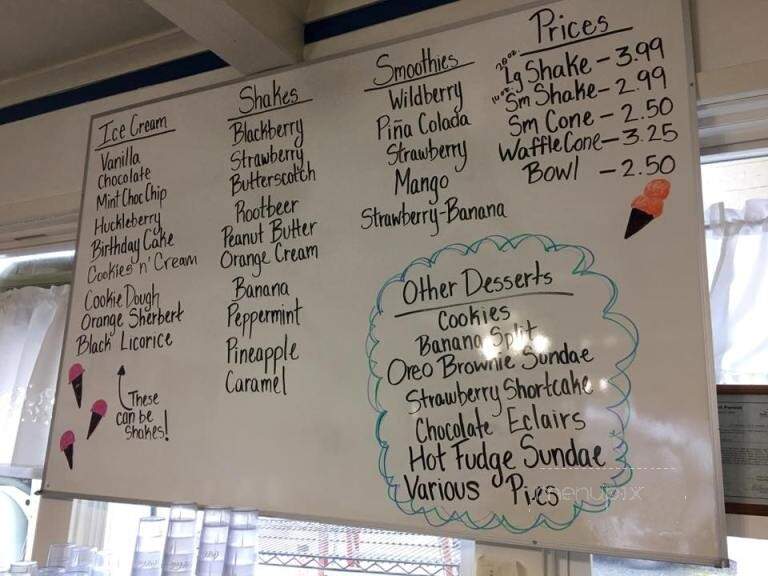 Ice Cream
Vanilla
Chocolate
Mint Choc Chip
Huckleberry
Birthday Cake
Cookies n' Cream
Cookie Dough
Orange Sherbert
Black Licorice
These
can be
shakes!
Shakes
Blackberry
Strawberry
Butterscotch
Rootbeer
Peanut Butter
Orange Cream
Banana
Peppermint
Pineapple
Caramel
Smoothies
Wildberry
Piña Colada
Strawberry
Mango
Strawberry-Banana
Prices
20oz Lg Shake - 3.99
Sm Shake - 2.99
Sm Cone - 2.50
Waffle Cone - 3.25
Bowl - 2.50
Other Desserts
Cookies
Banana Split
Oreo Brownie Sundae
Strawberry Shortcake
Chocolate Eclairs
Hot Fudge Sundae
Various Pies
menupix